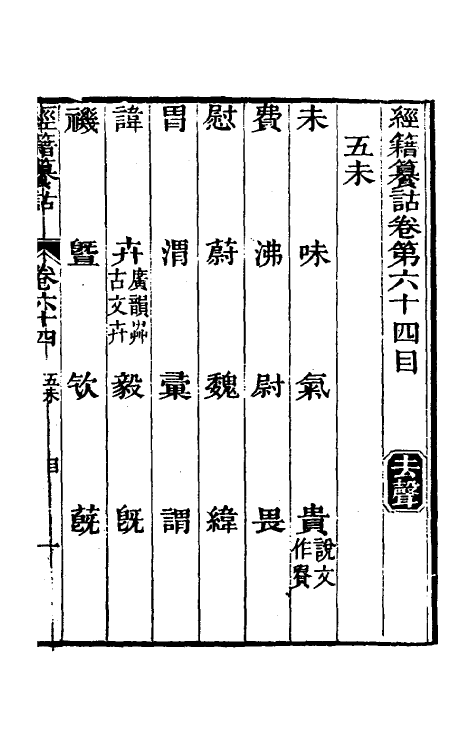 經籍籑詁卷第六十四目 去聲
五未
未 味 氣 貴說文作䝿
費 沸 尉 畏
慰 蔚 魏 緯
胃 渭 彚 謂
諱 卉廣韻艸古文卉 毅 旣
禨 曁 欬 蔇
經籍籑詁 卷六十四 五未 目 一